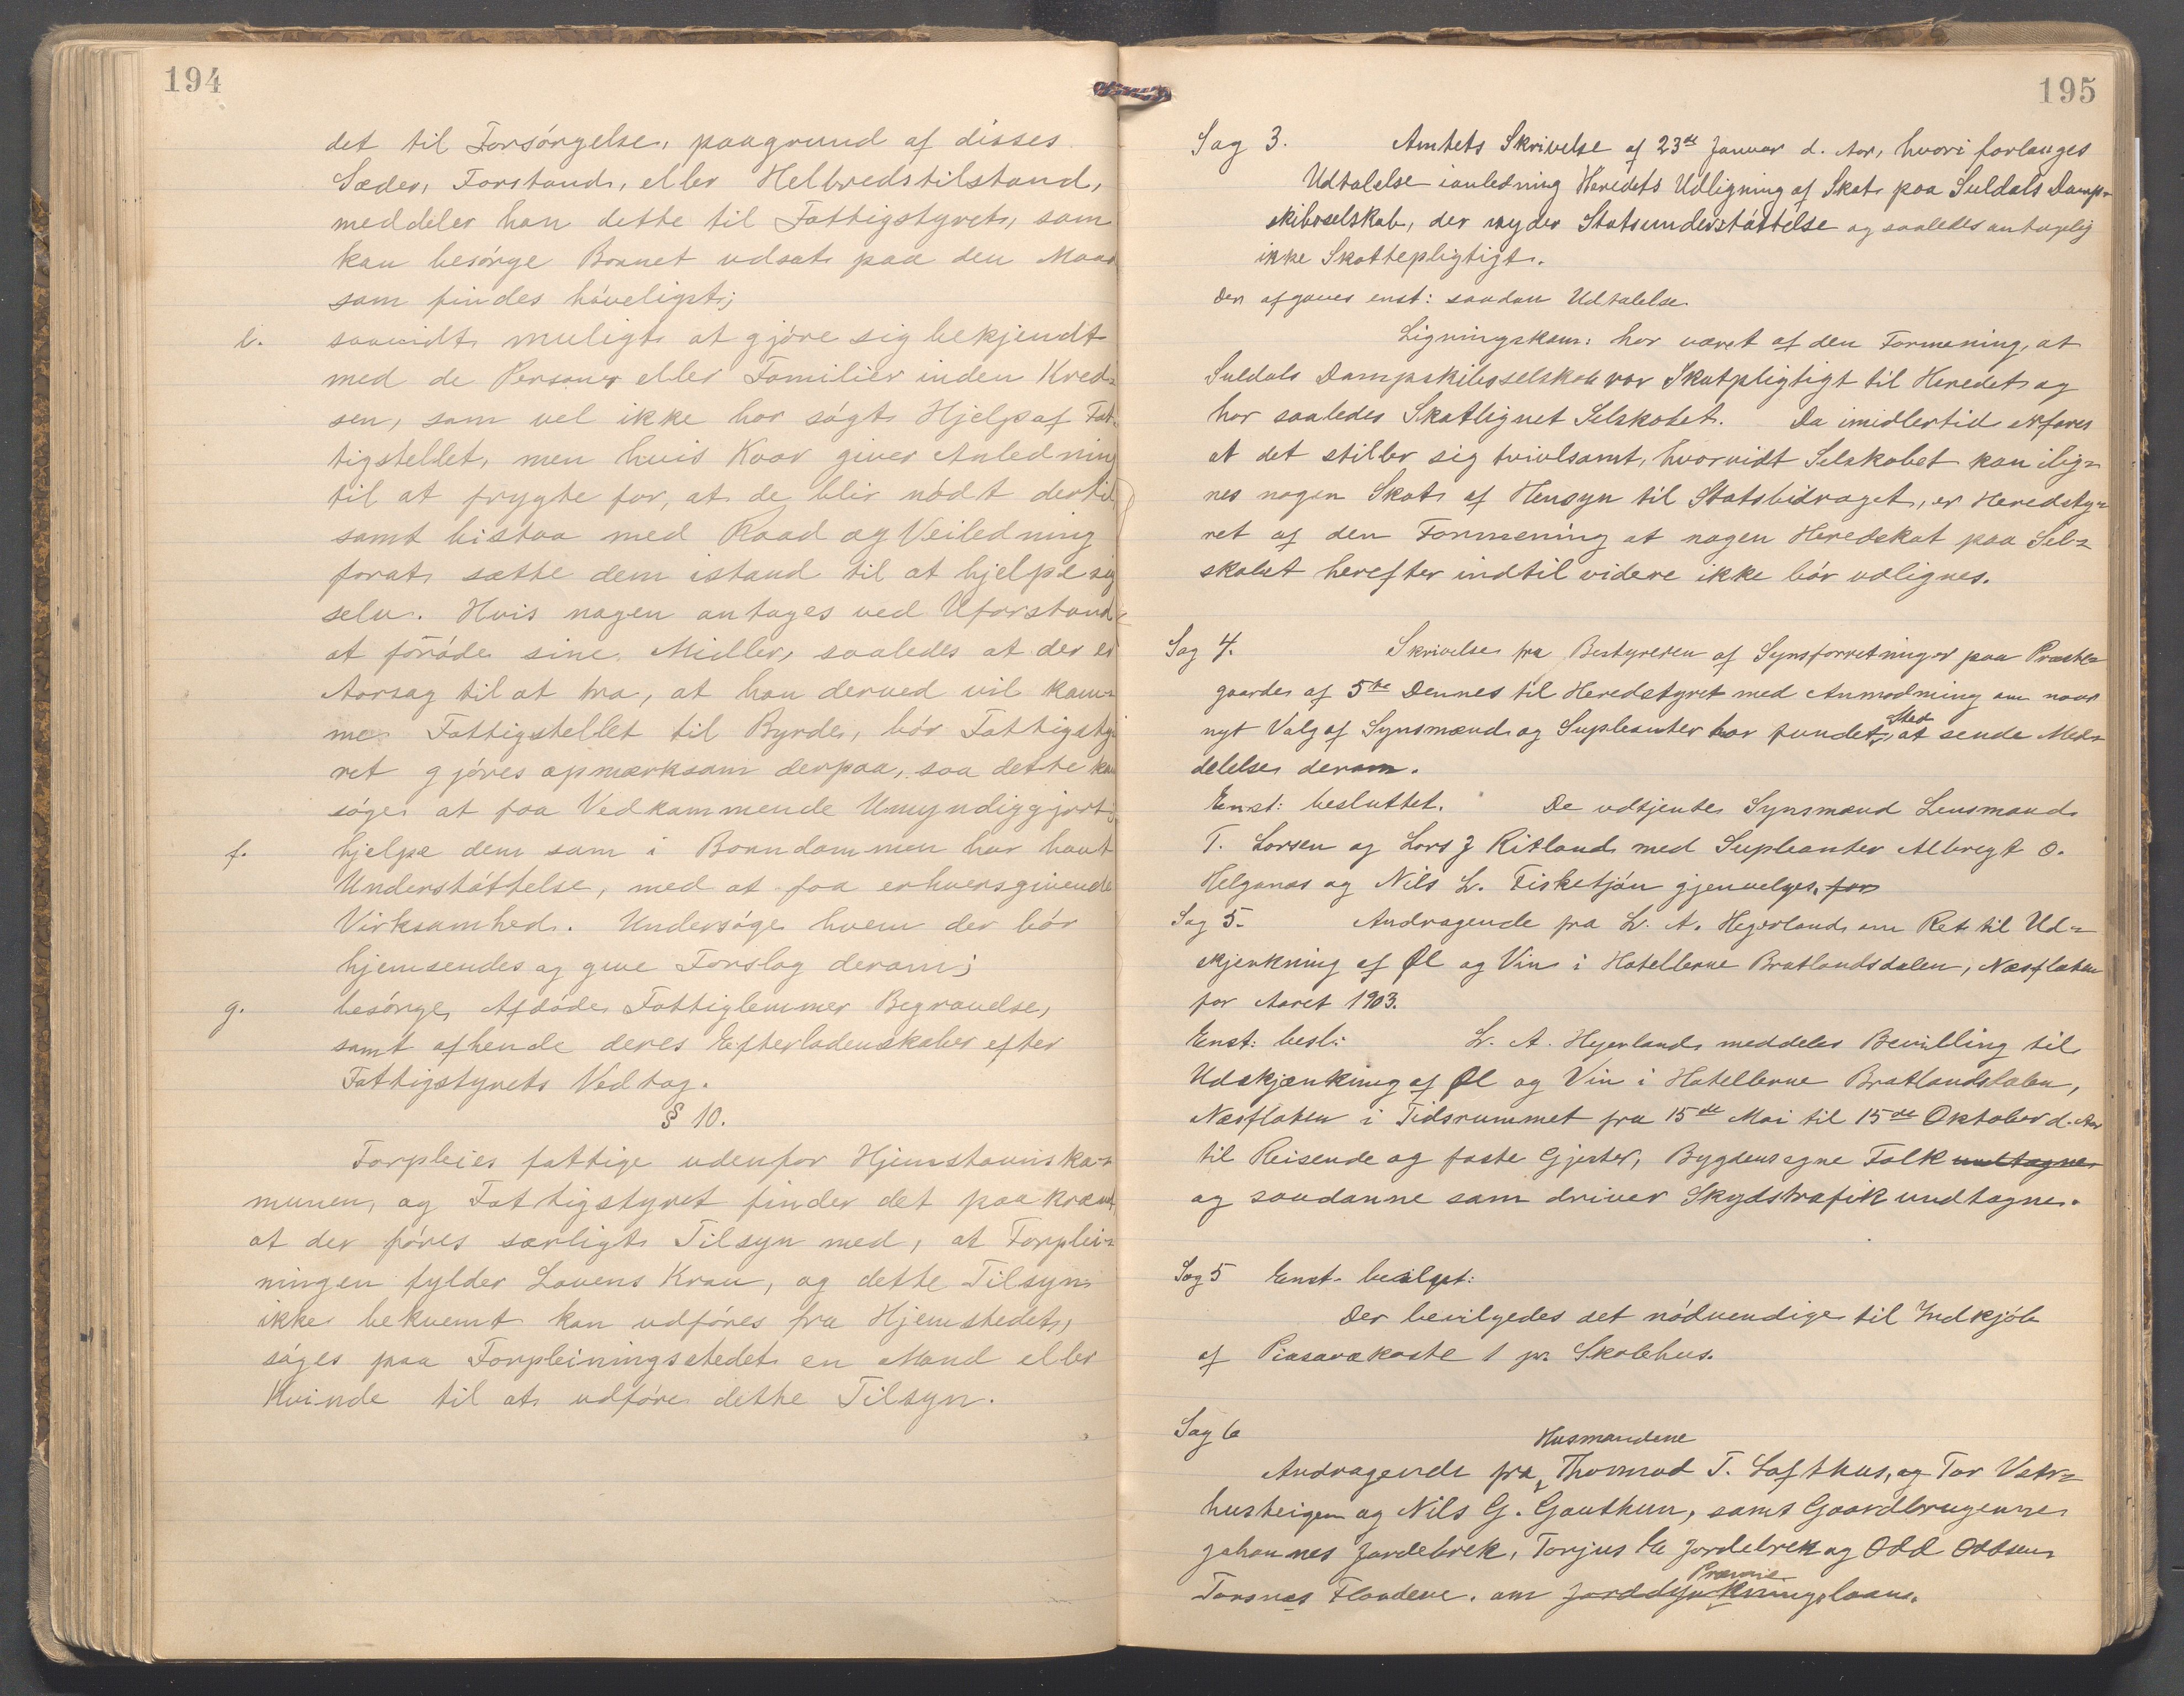 194
det til Forsórgelse, paagrund af disses
Sæder, Forstand, eller Helbredstilstand,
meddeler han dette til Fattigstyret, som
kan besórge Barnet udsat paa den Maade
som findes hóveligst;
e. saavidt muligt at gjóre sig bekjendt
med de Personer eller Familier inden Kred-
sen, som vel ikke har sógt Hjelp af Fat-
tigstellet, men hvis Kaar giver Anledning
til at frygte for, at de blir nódt dertil
samt bistaa med Raad og Veiledning
forat sætte dem istand til at hjelpe sig
selv. Hvis nogen antages ved Uforstand
at foróde sine Midler, saaledes at der er
Aarsag til at tro, at han derved vil kom-
me Fattigstellet til Byrde, bór Fattigsty-
ret gjóres opmærksom derpaa, saa dette kan
sóge at faa Vedkommende Umyndiggjort;
f. hjelpe dem som i Barndommen har havt
Understóttelse, med at faa erhversgivende
Virksomhed. Undersóge hvem der bór
hjemsendes og give Forslag derom;
g. besórge Afdóde Fattiglemmer Begravelse,
samt afhende deres Efterladenskaber efter
Fattigstyrets Vedtag.
§ 10.
Forpleies fattige udenfor Hjemstavnsko-
munen, og Fattigstyret finder det paakrævet
at der fóres særligt Tilsyn med, at Forplei-
ningen fylder Lovens Krav, og dette Tilsyn
ikke bekvemt kan udfóres fra Hjemstedet,
sóges paa Forpleiningsstedet en Mand eller
Kvinde til at udfóre dette Tilsyn.
195
Sag 3. Amtets Skrivelse af 23de Januar d. Aar, hvori forlanges
Udtalelse ianledning Heredets Udligning af Skat paa Suldals Damp-
skibsselskab, der nyder Statsunderstóttelse og saaledes antagelig
ikke Skattepligtigt.
Der afgaves enst: saadan Udtalelse.
Ligningskom: har været af den Formening, at
Suldals Dampskibsselskab var Skatpligtigt til Heredet og
har saaledes Skatlignet Selskabet. Da imidlertid erfares
at det stiller sig tvivlsomt, hvorvidt Selskabet kan ilig-
nes nogen Skat af Hensyn til Statsbidraget, er Heredsty-
ret af den Formening at nogen Heredskat paa Sel-
skabet herefter indtil videre ikke bór udlignes.
Sag 4. Skrivelse fra Bestyreren af Synsforretninger paa Præste-
gaarde af 5te Dennes til Heredstyret med Anmodning om naar
nyt Valg af Synsmænd og Supleanter har fundet Sted at sende Med-
delelse derom.
Enst: besluttet. De udtjente Synsmænd Lensmand
T. Larsen og Lars J Ritland med Supleanter Albregt O.
Helganæs og Nils L. Fisketjón gjenvelges. for
Sag 5. Andragende fra L. A. Hegerland om Ret til Ud-
skjenkning af Øl og Vin i Hotellerne Bratlandsdalen, Næsflaten
for Aaret 1903.
Enst: besl: L. A. Hegerland meddeles Bevilling til
Udskjænkning af Øl og Vin i Hotellerne Bratlandsdalen,
Næsflaten i Tidsrummet fra 15de Mai til 15de Oktober d. Aar
til Reisende og faste Gjester, Bygdens egne Folk undtagne
og saadanne som driver Skydstrafik undtagne.
Sag 5 Enst. besluttet:
Der bevilgedes det nódvendige til Indkjób
af Piasavakoste 1 pr. Skolehus.
Sag 6
Husmændene
Andragende fra Thormod T. Lofthus, og Tor Vetr-
husteigen og Nils G. Gauthun, samt Gaardbrugerne
Johannes Jordebrek, Torjus E Jordebrek og Odd Oddsen
Præmie
Torsnæs Flondene. om Jorddyrkningslaan.